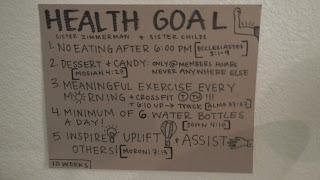 HEALTH GOAL
SISTER ZIMMERMAN + SISTER CHILDS
1. NO EATING AFTER 6:00 PM ECCLESIASTES 3:1-9
2. DESSERT + CANDY: ONLY @ MEMBERS HOMES
NEVER ANYWHERE ELSE
MOSIAH 4:27
3. MEANINGFUL EXERCISE EVERY
MORNING + CROSSFIT T TH !!!
+ GO UP → TRACK ALMA
4. MINIMUM OF 6 WATER BOTTLES
A DAY! JOHN 4:10
5. INSPIRE UPLIFT + ASSIST
OTHERS! MORONI 7:13
10 WEEKS